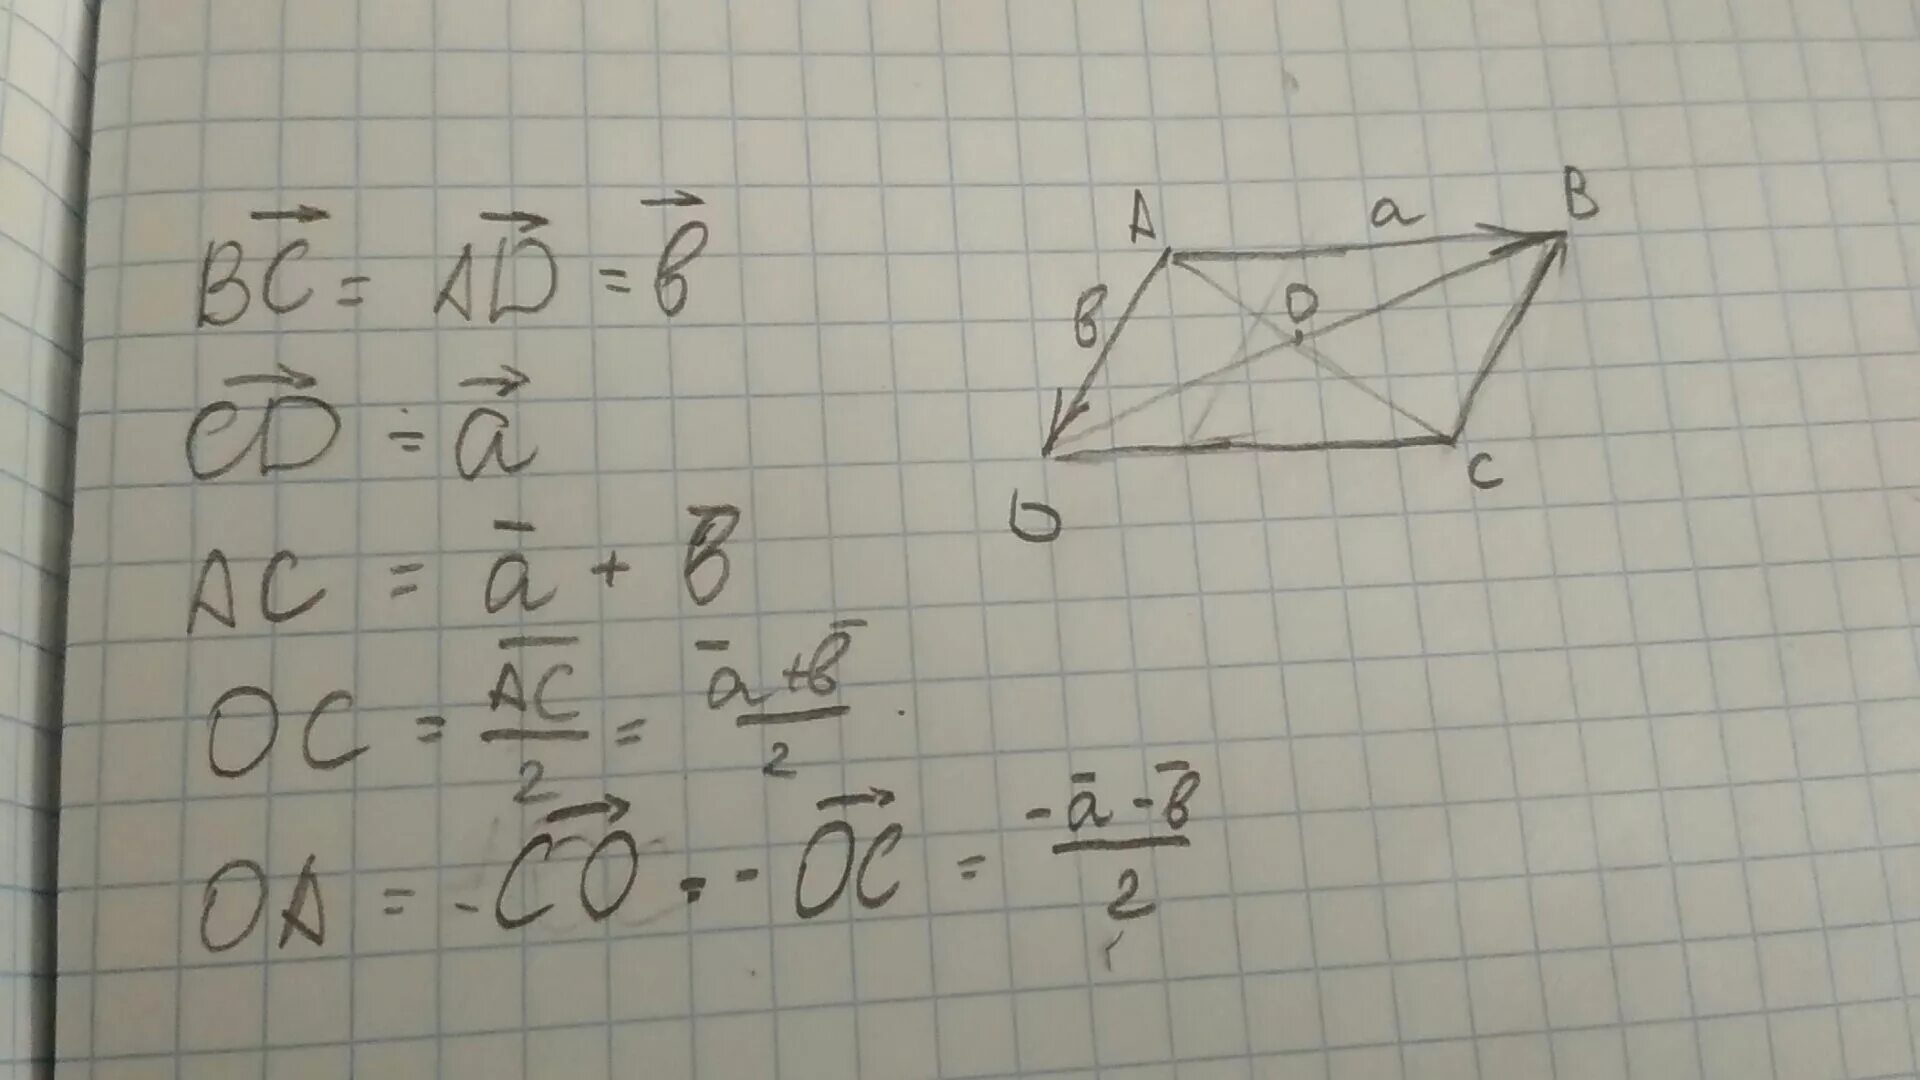 BC = AD = в
CD = a
AC = a + в
OC = AC/2 = a+в/2
OA = -CO = - OC = -a-в/2
A a B
в O
D C